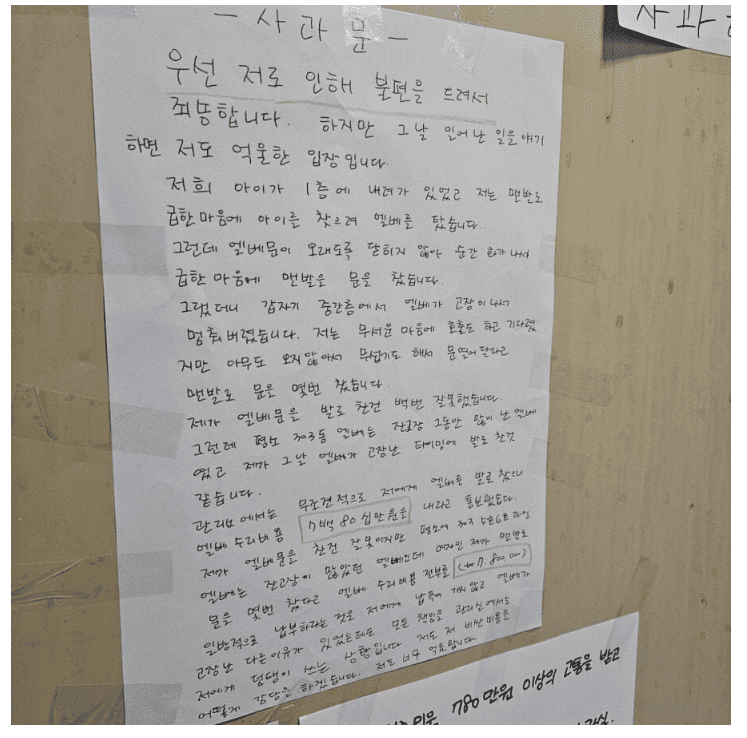 - 사 과 문 -
사 과
우선 저로 인해 불편을 드려서
죄송합니다. 하지만 그날 일어난 일을 얘기
하면 저도 억울한 입장입니다.
저희 아이가 1층에 내려가 있었고 저는 맨발로
급한마음에 아이를 찾으려 엘베를 탔습니다.
그런데 엘베문이 오래도록 닫히지 않아 순간 화가나서
급한마음에 맨발을 문을 찼습니다.
그랬더니 갑자기 중간층에서 엘베가 고장이나서
멈춰버렸습니다. 저는 무서운 마음에 호출도 하고 기다렸
지만 아무도 오지않아서 무섭기도 해서 문열어달라고
맨발로 문을 몇번 찼습니다.
제가 엘베문을 발로 찬건 백번 잘못했습니다.
그런데 평소 303동 엘베는 잔고장 그동안 많이 난 엘베
였고 제가 그날 엘베가 고장난 타이밍에 발로 찬것
같습니다.
관리소에서는 무조건적으로 저에게 엘베를 발로 찼으니
엘베 수리비용 7백80십만원을 내라고 통보했습니다.
제가 엘베문을 찬건 잘못이지만 평소에 303 5호6호라인
엘베는 잔고장이 많았던 엘베인데 여자인 제가 맨발로
문을 몇번 찼다고 엘베 수리비용 전부를 (7.800.000)
일방적으로 납부하라는 것은 저에게 납득이 가지않고 엘베가
고장난 다른이유가 있었는데도 모든 책임을 관리실에서는
저에게 덤탱이 쓰는 상황입니다. 저도 저 비싼비용을
어떻게 감당을 하겠습니다. 저도 너무 억울합니다.
780만원 이상의 고통을 받고